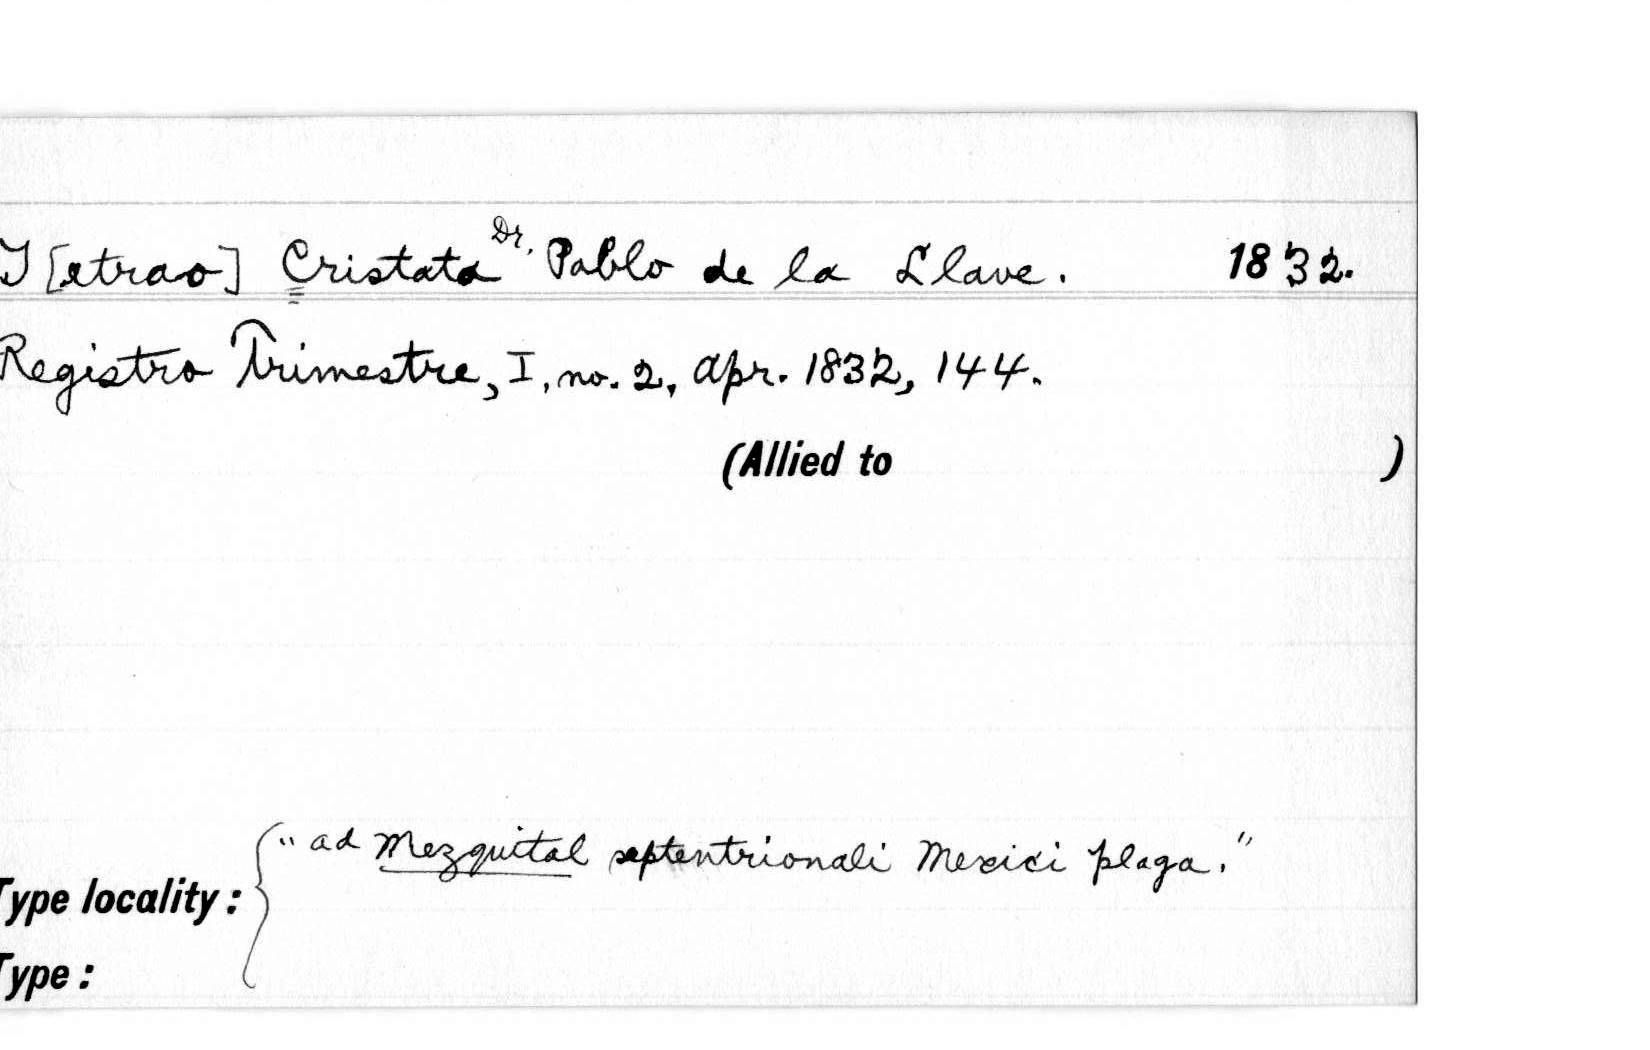 T[etrao] Cristata Dr. Pablo de la Llave. 1832.
Registro Trimestre, I, no. 2, Apr. 1832, 144.
(Allied to )
"ad Mezquital septentrionali Mexici plaga."
Type locality:
Type: